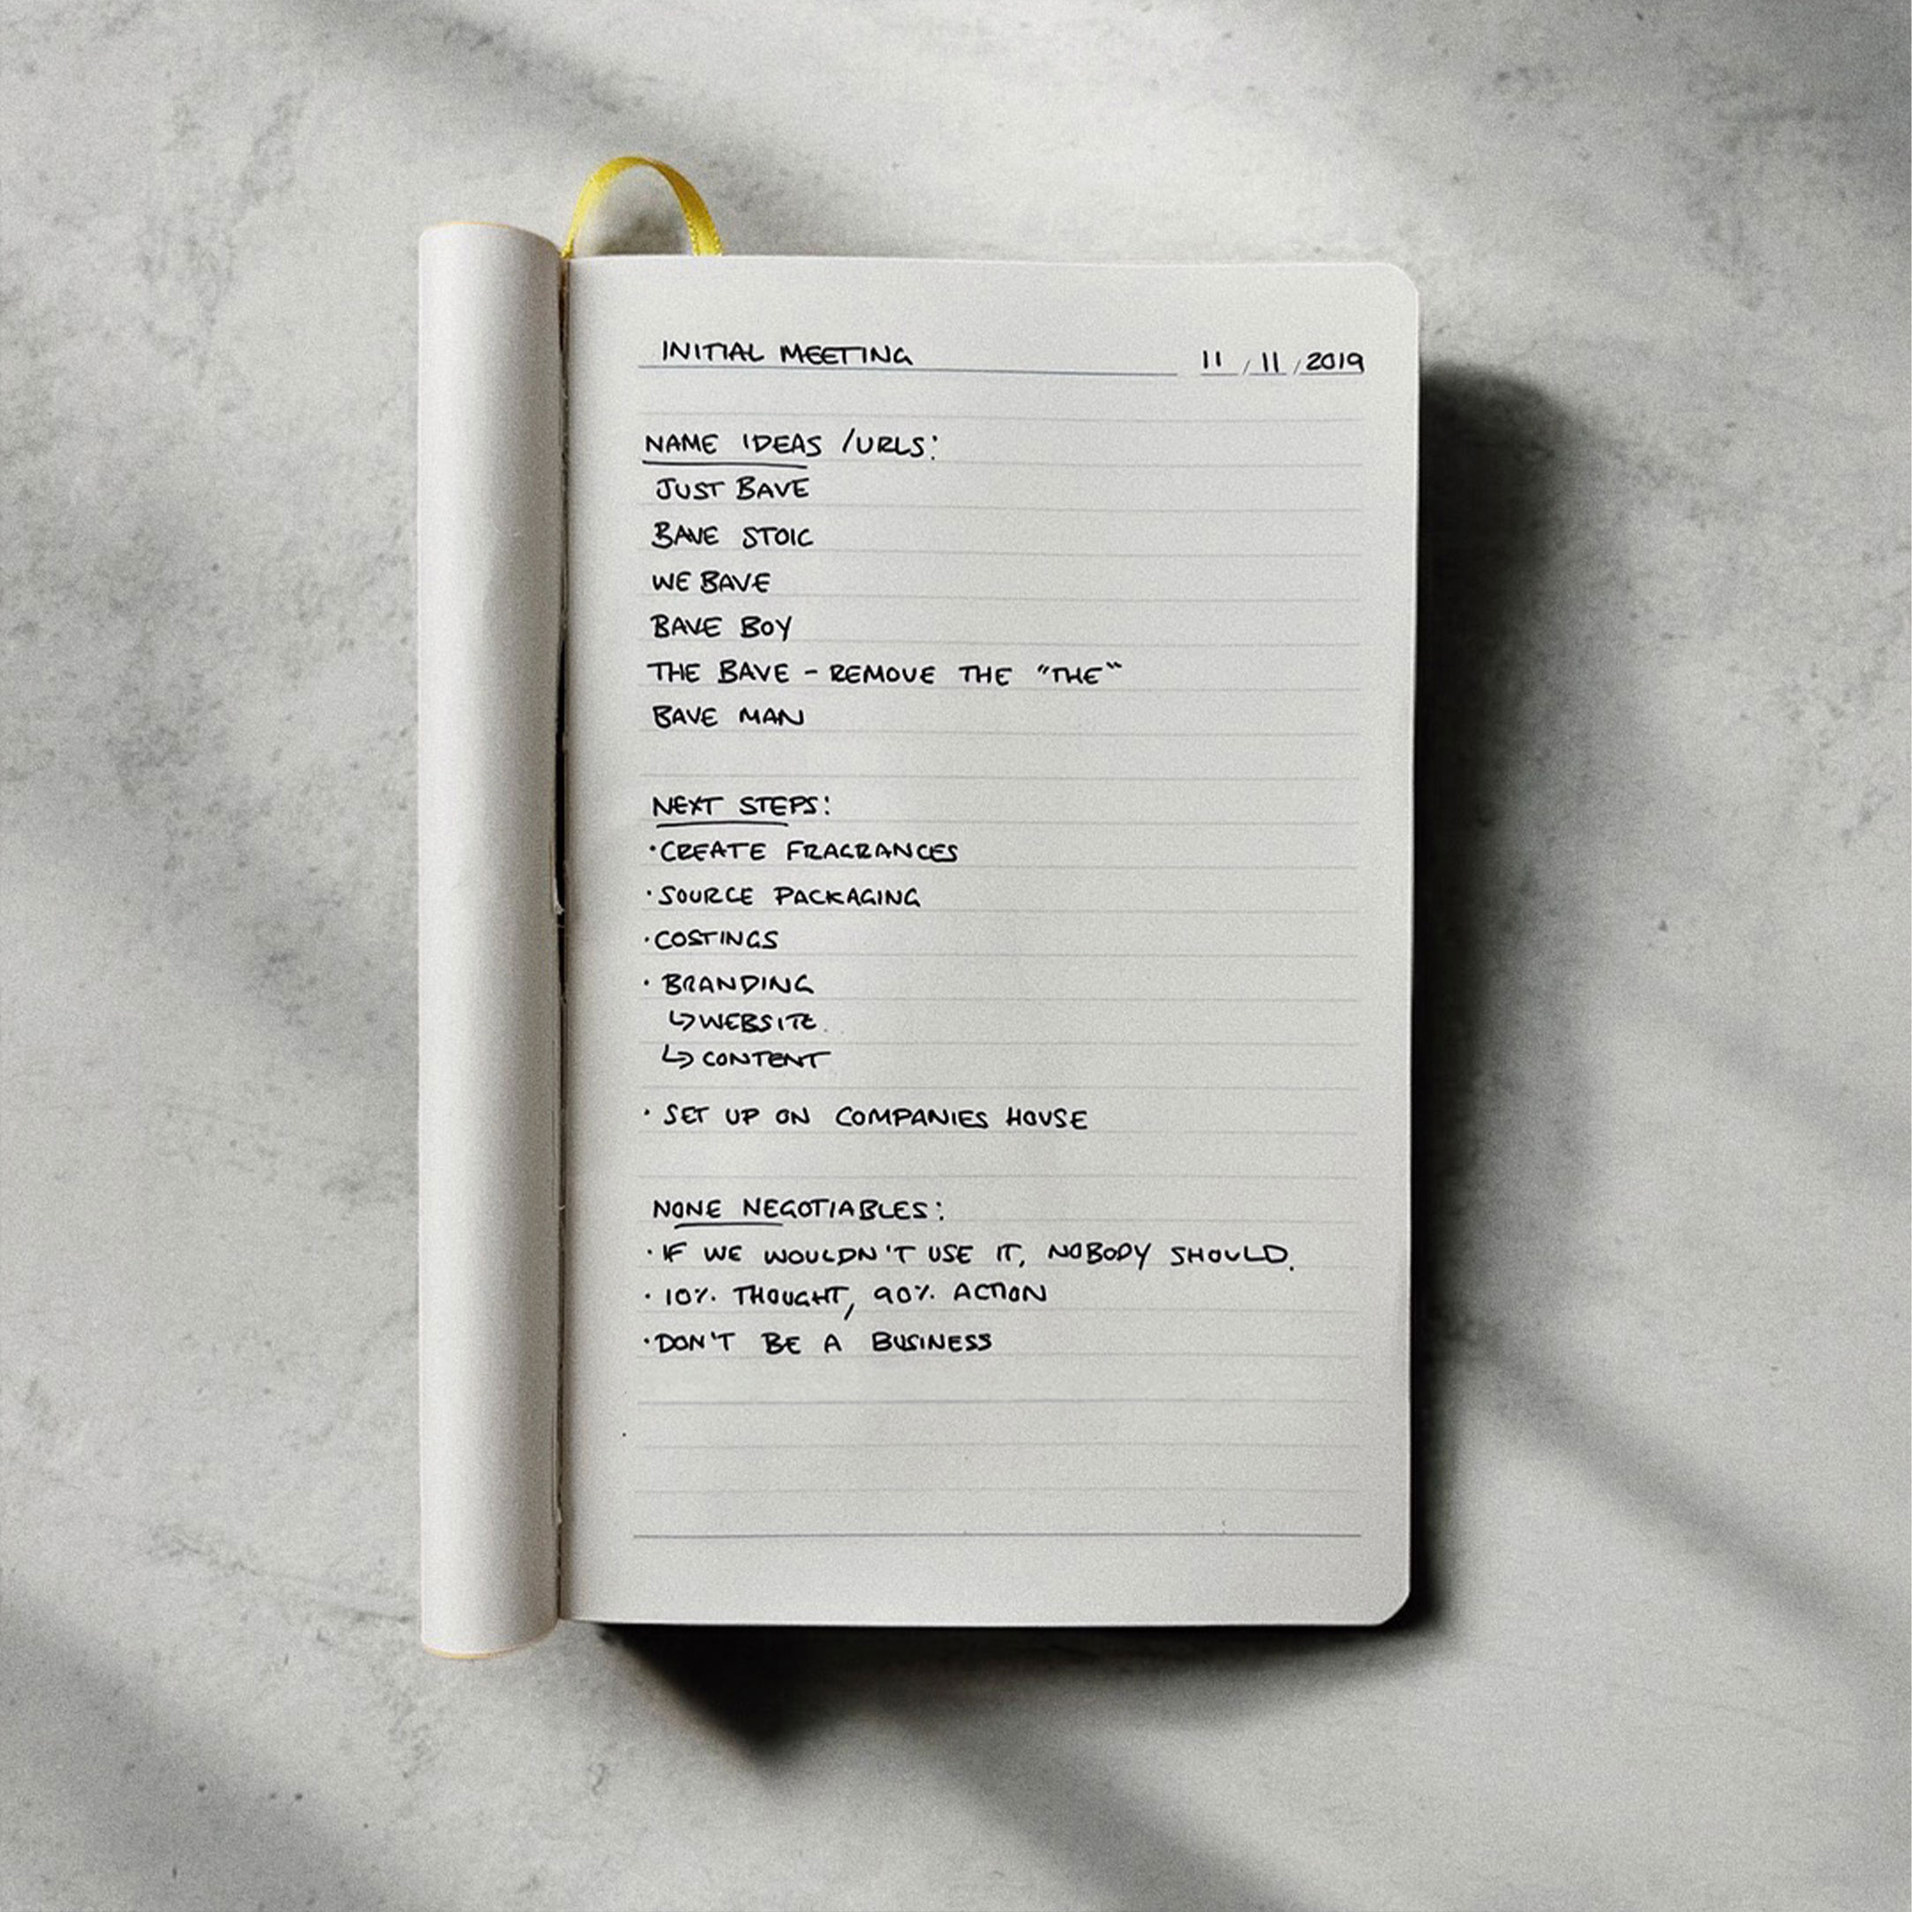 INITIAL MEETING 11/11/2019
NAME IDEAS /URLS:
JUST BAVE
BAVE STOIC
WE BAVE
BAVE BOY
THE BAVE - REMOVE THE "THE"
BAVE MAN
NEXT STEPS:
·CREATE FRAGRANCES
·SOURCE PACKAGING
·COSTINGS
· BRANDING
↳WEBSITE
↳CONTENT
· SET UP ON COMPANIES HOUSE
NONE NEGOTIABLES:
·IF WE WOULDN'T USE IT, NOBODY SHOULD.
· 10% THOUGHT, 90% ACTION
·DON'T BE A BUSINESS